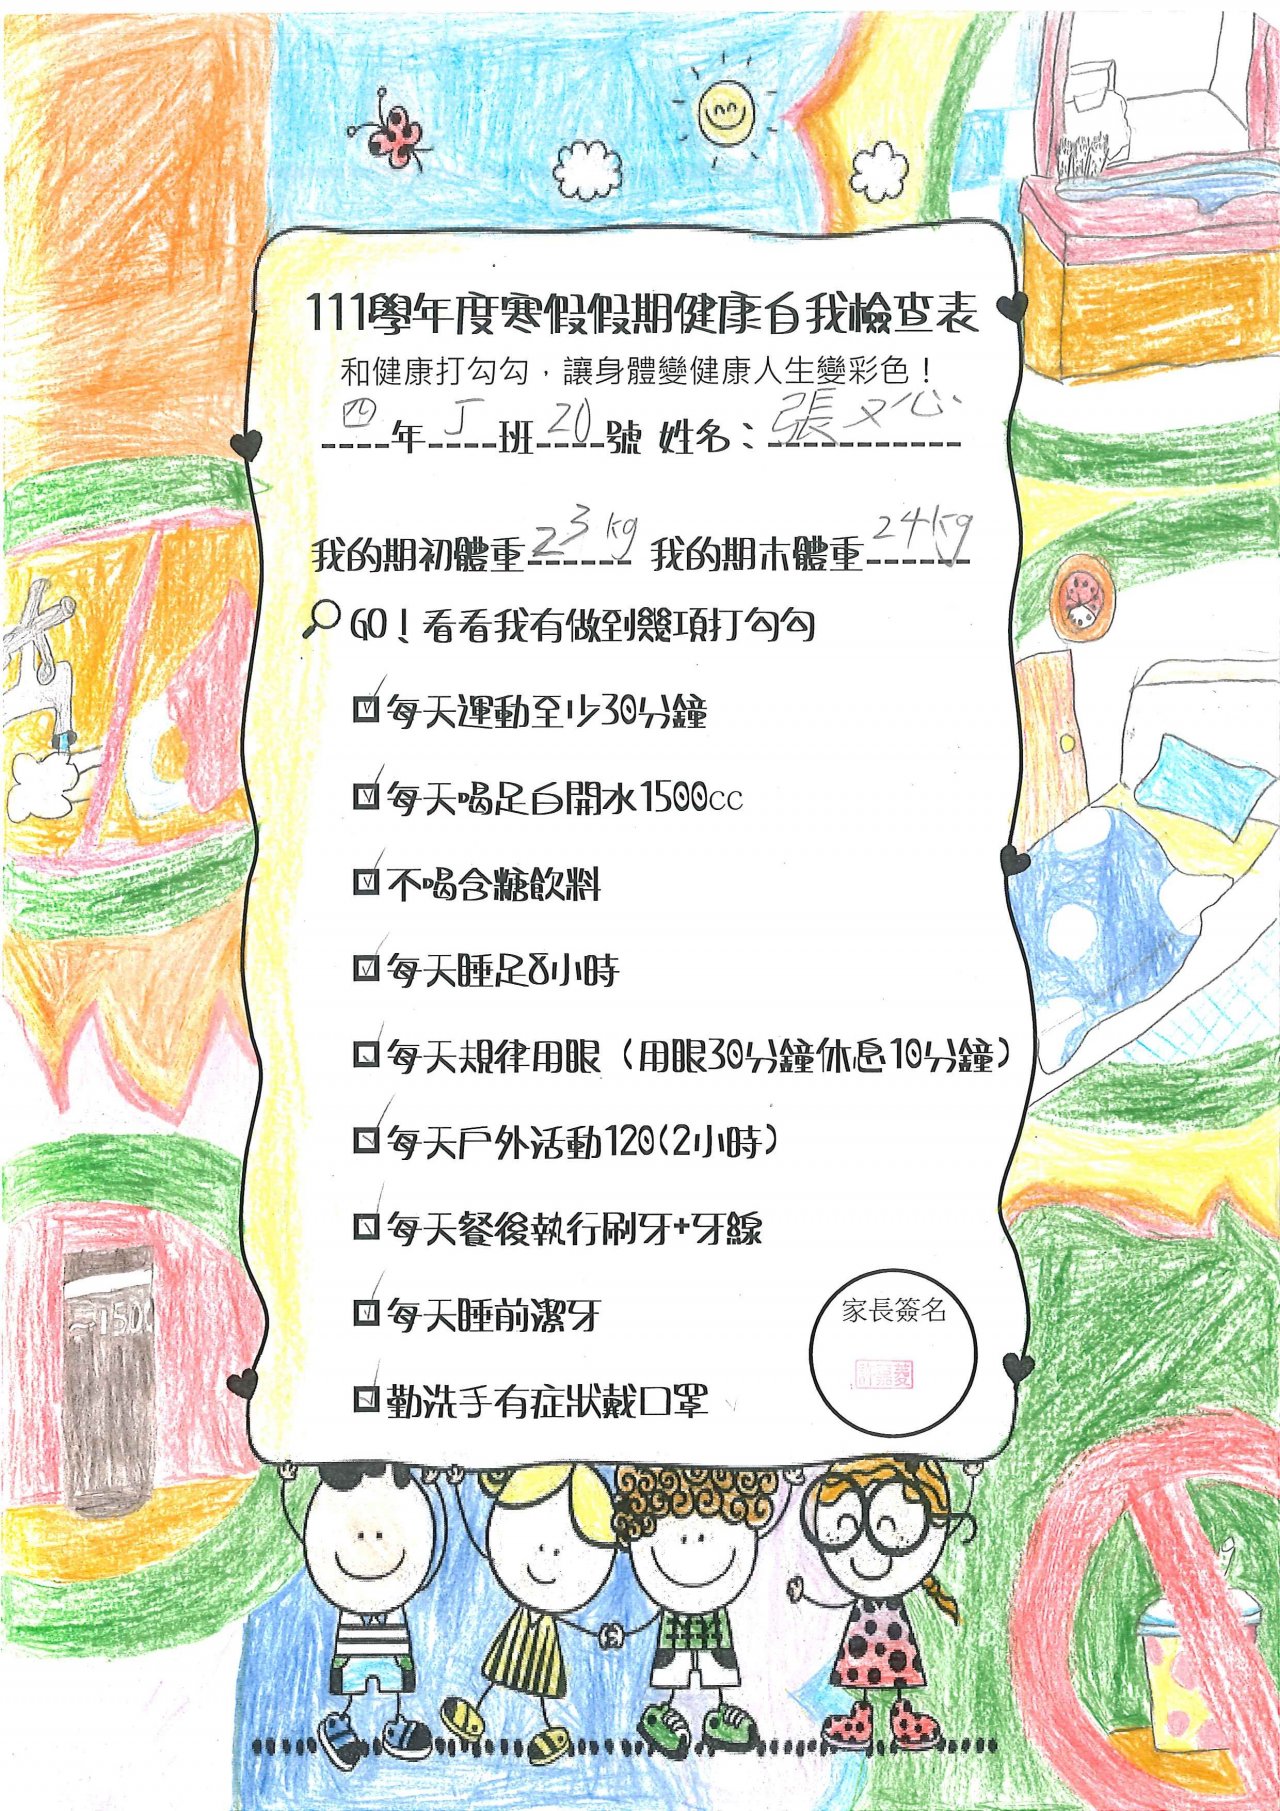 111學年度寒假假期健康自我檢查表
和健康打勾勾，讓身體變健康人生變彩色！
四年丁班20號 姓名：張文心
我的期初體重23kg 我的期末體重24kg
GO！看看我有做到幾項打勾勾
☑每天運動至少30分鐘
☑每天喝足白開水1500cc
☑不喝含糖飲料
☑每天睡足8小時
☑每天規律用眼（用眼30分鐘休息10分鐘）
☑每天戶外活動120(2小時)
☑每天餐後執行刷牙+牙線
☑每天睡前潔牙
☑勤洗手有症狀戴口罩
家長簽名
許嘉菱
1500